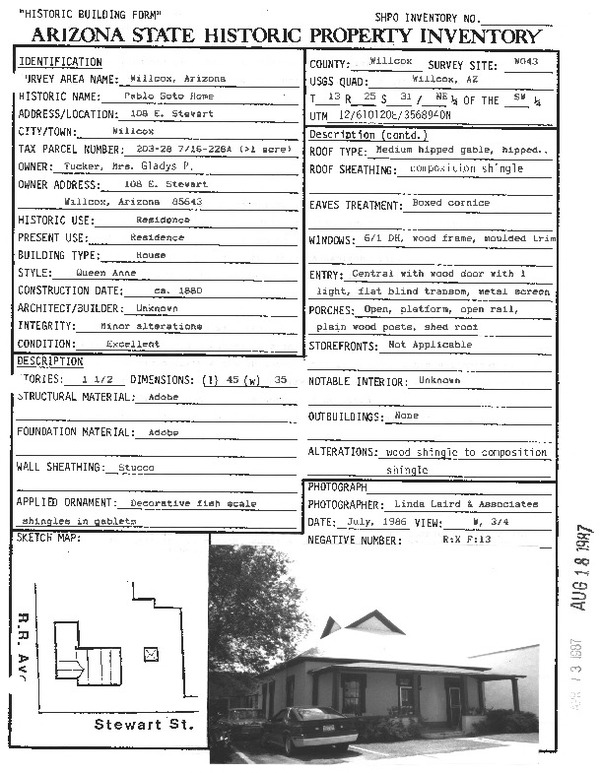 "HISTORIC BUILDING FORM"
SHPO INVENTORY NO.
ARIZONA STATE HISTORIC PROPERTY INVENTORY
IDENTIFICATION
URVEY AREA NAME: Willcox, Arizona
HISTORIC NAME: Pablo Soto Home
ADDRESS/LOCATION: 108 E. Stewart
CITY/TOWN: Willcox
TAX PARCEL NUMBER: 203-28 7/16-228A (>1 acre)
OWNER: Tucker, Mrs. Gladys P.
OWNER ADDRESS: 108 E. Stewart
Willcox, Arizona 85643
HISTORIC USE: Residence
PRESENT USE: Residence
BUILDING TYPE: House
STYLE: Queen Anne
CONSTRUCTION DATE: ca. 1880
ARCHITECT/BUILDER: Unknown
INTEGRITY: Minor alterations
CONDITION: Excellent
DESCRIPTION
TORIES: 1 1/2 DIMENSIONS: (l) 45 (w) 35
STRUCTURAL MATERIAL: Adobe
FOUNDATION MATERIAL: Adobe
WALL SHEATHING: Stucco
APPLIED ORNAMENT: Decorative fish scale
shingles in gablets
COUNTY: Willcox SURVEY SITE: W043
USGS QUAD: Willcox, AZ
T 13 R 25 S 31 / NE ¼ OF THE SW ¼
UTM 12/610120E/3568940N
Description (contd.)
ROOF TYPE: Medium hipped gable, hipped..
ROOF SHEATHING: composition shingle
EAVES TREATMENT: Boxed cornice
WINDOWS: 6/1 DH, wood frame, moulded trim
ENTRY: Central with wood door with 1
light, flat blind transom, metal screen
PORCHES: Open, platform, open rail,
plain wood posts, shed roof
STOREFRONTS: Not Applicable
NOTABLE INTERIOR: Unknown
OUTBUILDINGS: None
ALTERATIONS: wood shingle to composition
shingle
PHOTOGRAPH
PHOTOGRAPHER: Linda Laird & Associates
DATE: July, 1986 VIEW: W, 3/4
NEGATIVE NUMBER: R:X F:13
SKETCH MAP:
R.R. Ave
Stewart St.
AUG 18 1987
13 1987